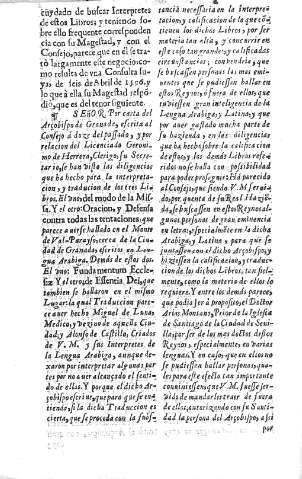 cuydado de buscar Interpretes
de estos Libros; y teniendo so-
bre ello frequente correspondencia
con su Magestad, y con el
Consejo, parece que en el se tra-
tò largamente este negocio; como
resulta de vna Consulta su-
ya de seis de Abril de 1596. y
lo que à ella su Magestad respondió,
que es del tenor siguiente.
SEÑOR. Por carta del
Arçobispo de Granada, escrita al
Consejo à doze del passado, y por
relacion del Licenciado Geroni-
mo de Herrera, Clerigo, su Secre-
tario, se han visto las diligencias
que ha hecho para la interpreta-
cion, y traducion de los tres Li-
bros. El vno, del modo de la Mis-
sa. Y el otro, Oracion, y Defensa
contra todas las tentaciones, que
parece averse hallado en el Monte
de Val-Parayso, cerca de la Ciu-
dad de Granada, escritos en Len-
gua Arabiga. Demàs de estos dos.
El vno: Fundamentum Eccle-
siæ. Y el otro, de Essentia Dei, que
tambien se hallaron en el mismo
Lugar: la qual Traduccion pare-
ce aver hecho Miguel de Luna,
Medico, y vezino de aquella Ciu-
dad, y Alonso de Castillo, Criados
de V. M. y sus Interpretes de
la Lengua Arabiga, aunque de-
xaron por interpretar algunas par-
tes por no aver alcançado el senti-
do de ellas. Y porque el dicho Ar-
çobispo escrive, que para que se en-
tienda, si la dicha Traduccion es
cierta, que se proceda con la
tancia necessaria en la interpre-
tacion, y calificacion de lo que co-
tienen los dichos Libros, por ser
materia tan alta, y concurrir en
este caso tan grandes, y calificadas
circunstancias, convendria, que
se buscassen personas las mas emi-
nentes que se pudiessen hallar en
estos Reynos, ò fuera de ellos, que
tuviessen gran inteligencia de la
Lengua Arabiga, y Latina, y que
por aver gastado mucha parte de
su hazienda, en las diligencias
que ha hecho sobre la calificacion
de estos, y los demàs Libros referi-
dos, no se halla con possibilidad
para poder proseguir: Ha parecido
al Consejo, que siendo V. M. servi-
do, por quenta de su Real Hazien-
da, se buscassen en estos Reynos al-
gunas personas de gran eminencia
en letras, especialmente en la dicha
Arabiga, y Latina, y para que se
juntassen con el dicho Arçobispo, è
hiziessen la calificacion, y traduc-
cion de los dichos Libros, tan fiel-
mente, como la materia de ellos lo
requiere. Y entre los demàs parece,
que podria ser à proposito, el Doctor
Arias Montano, Prior de la Iglesia
de Santiago de la Ciudad de Sevi-
lla, por ser de los mas doctos de estos
Reynos, especialmente, en varias
lenguas. Y en caso, que en ellos no se
pudiessen hallar personas, quales
para este efecto tan importante
convinieren; que V. M. fuesse ser-
vido de mandarlos traer de fuera
de ellos, autorizando con su Santi-
dad la persona del Arçobispo, assi